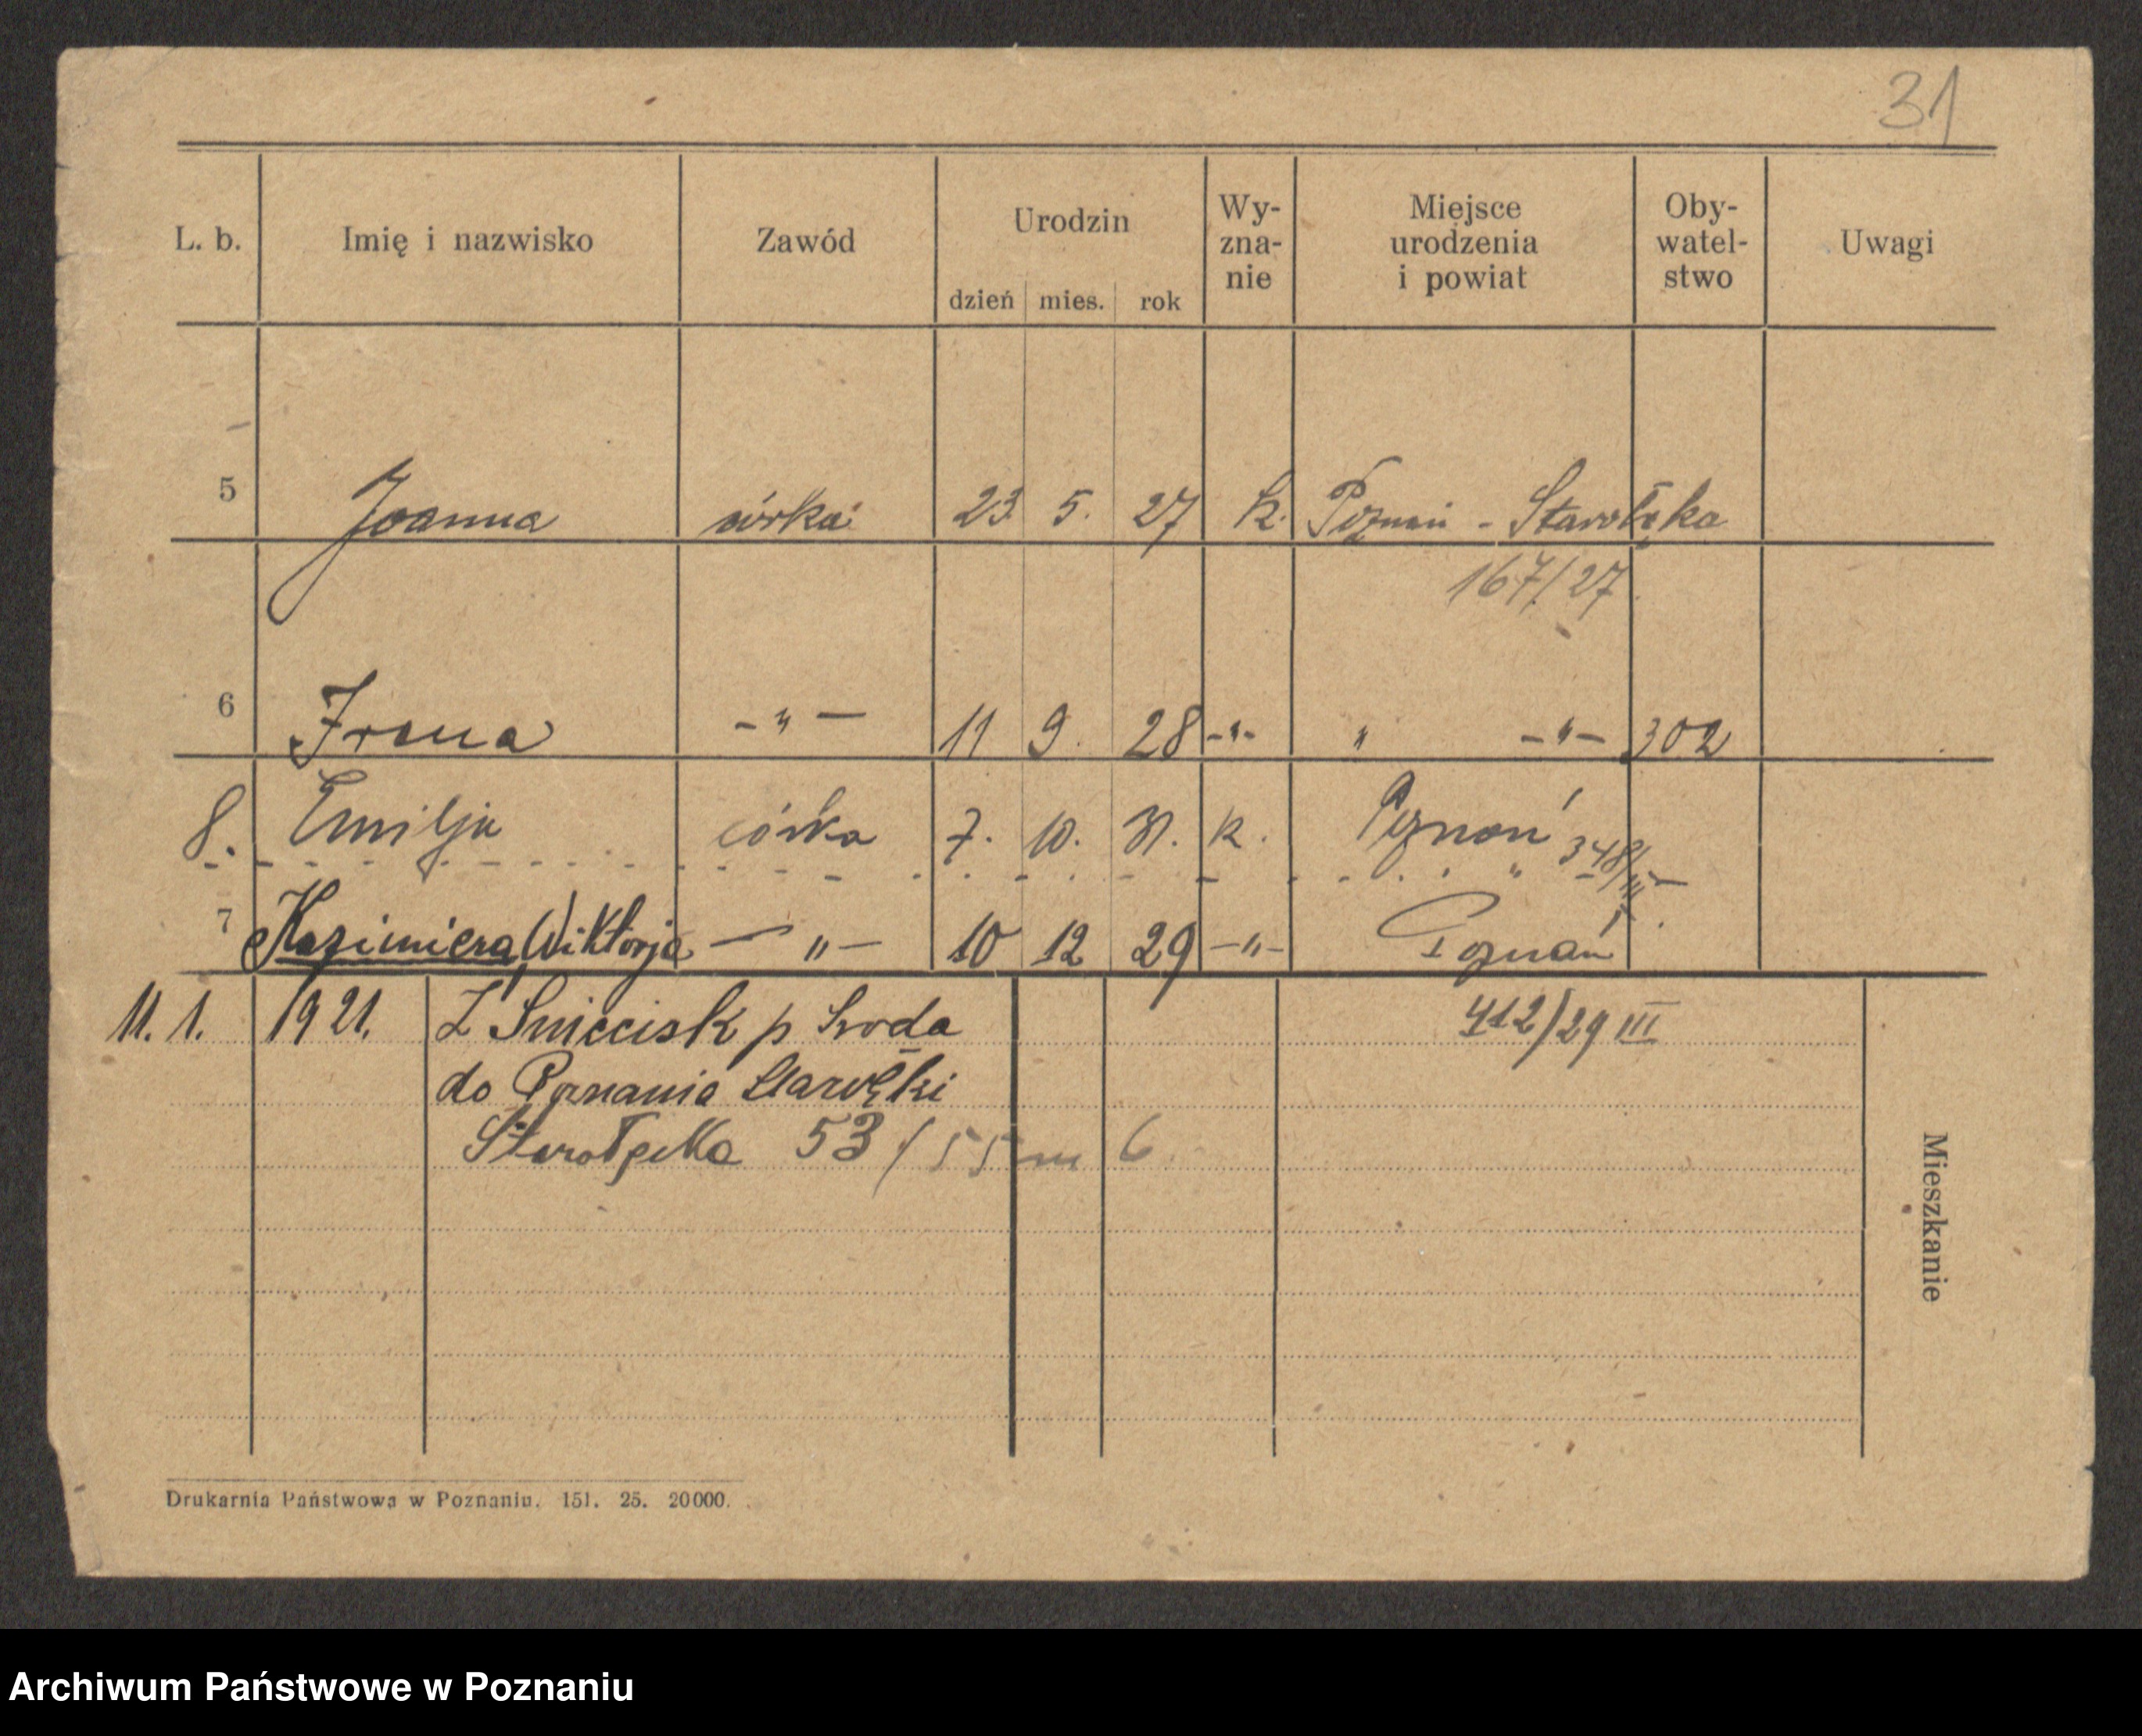 31
L. b. Imię i nazwisko Zawód Urodzin dzień mies. rok Wy-zna-nie Miejsce urodzenia i powiat Oby-watel-stwo Uwagi
5 Joanna córka 23. 5. 27 k. Poznań - Starołęka
167/27
6 Irena -"- 11 9. 28 -"- " -"- 302
8. Emilja córka 7. 10. 31. k. Poznań 348/III
7 Kazimiera Wiktorja -"- 10 12 29 -"- Poznań
11. 1. 1921. Z Śniecisk p Środa 412/29 III
do Poznania Starołęki
Starołęka 53/55 m 6
Mieszkanie
Drukarnia Państwowa w Poznaniu. 151. 25. 20000.
Archiwum Państwowe w Poznaniu